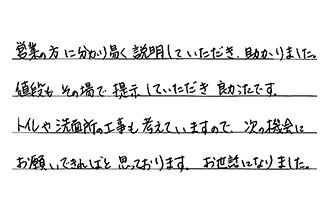 営業の方に分かり易く説明していただき、助かりました。
値段も その場で 提示していただき 良かったです。
トイレや洗面所の工事も考えていますので、次の機会に
お願いできればと思っております。 お世話になりました。